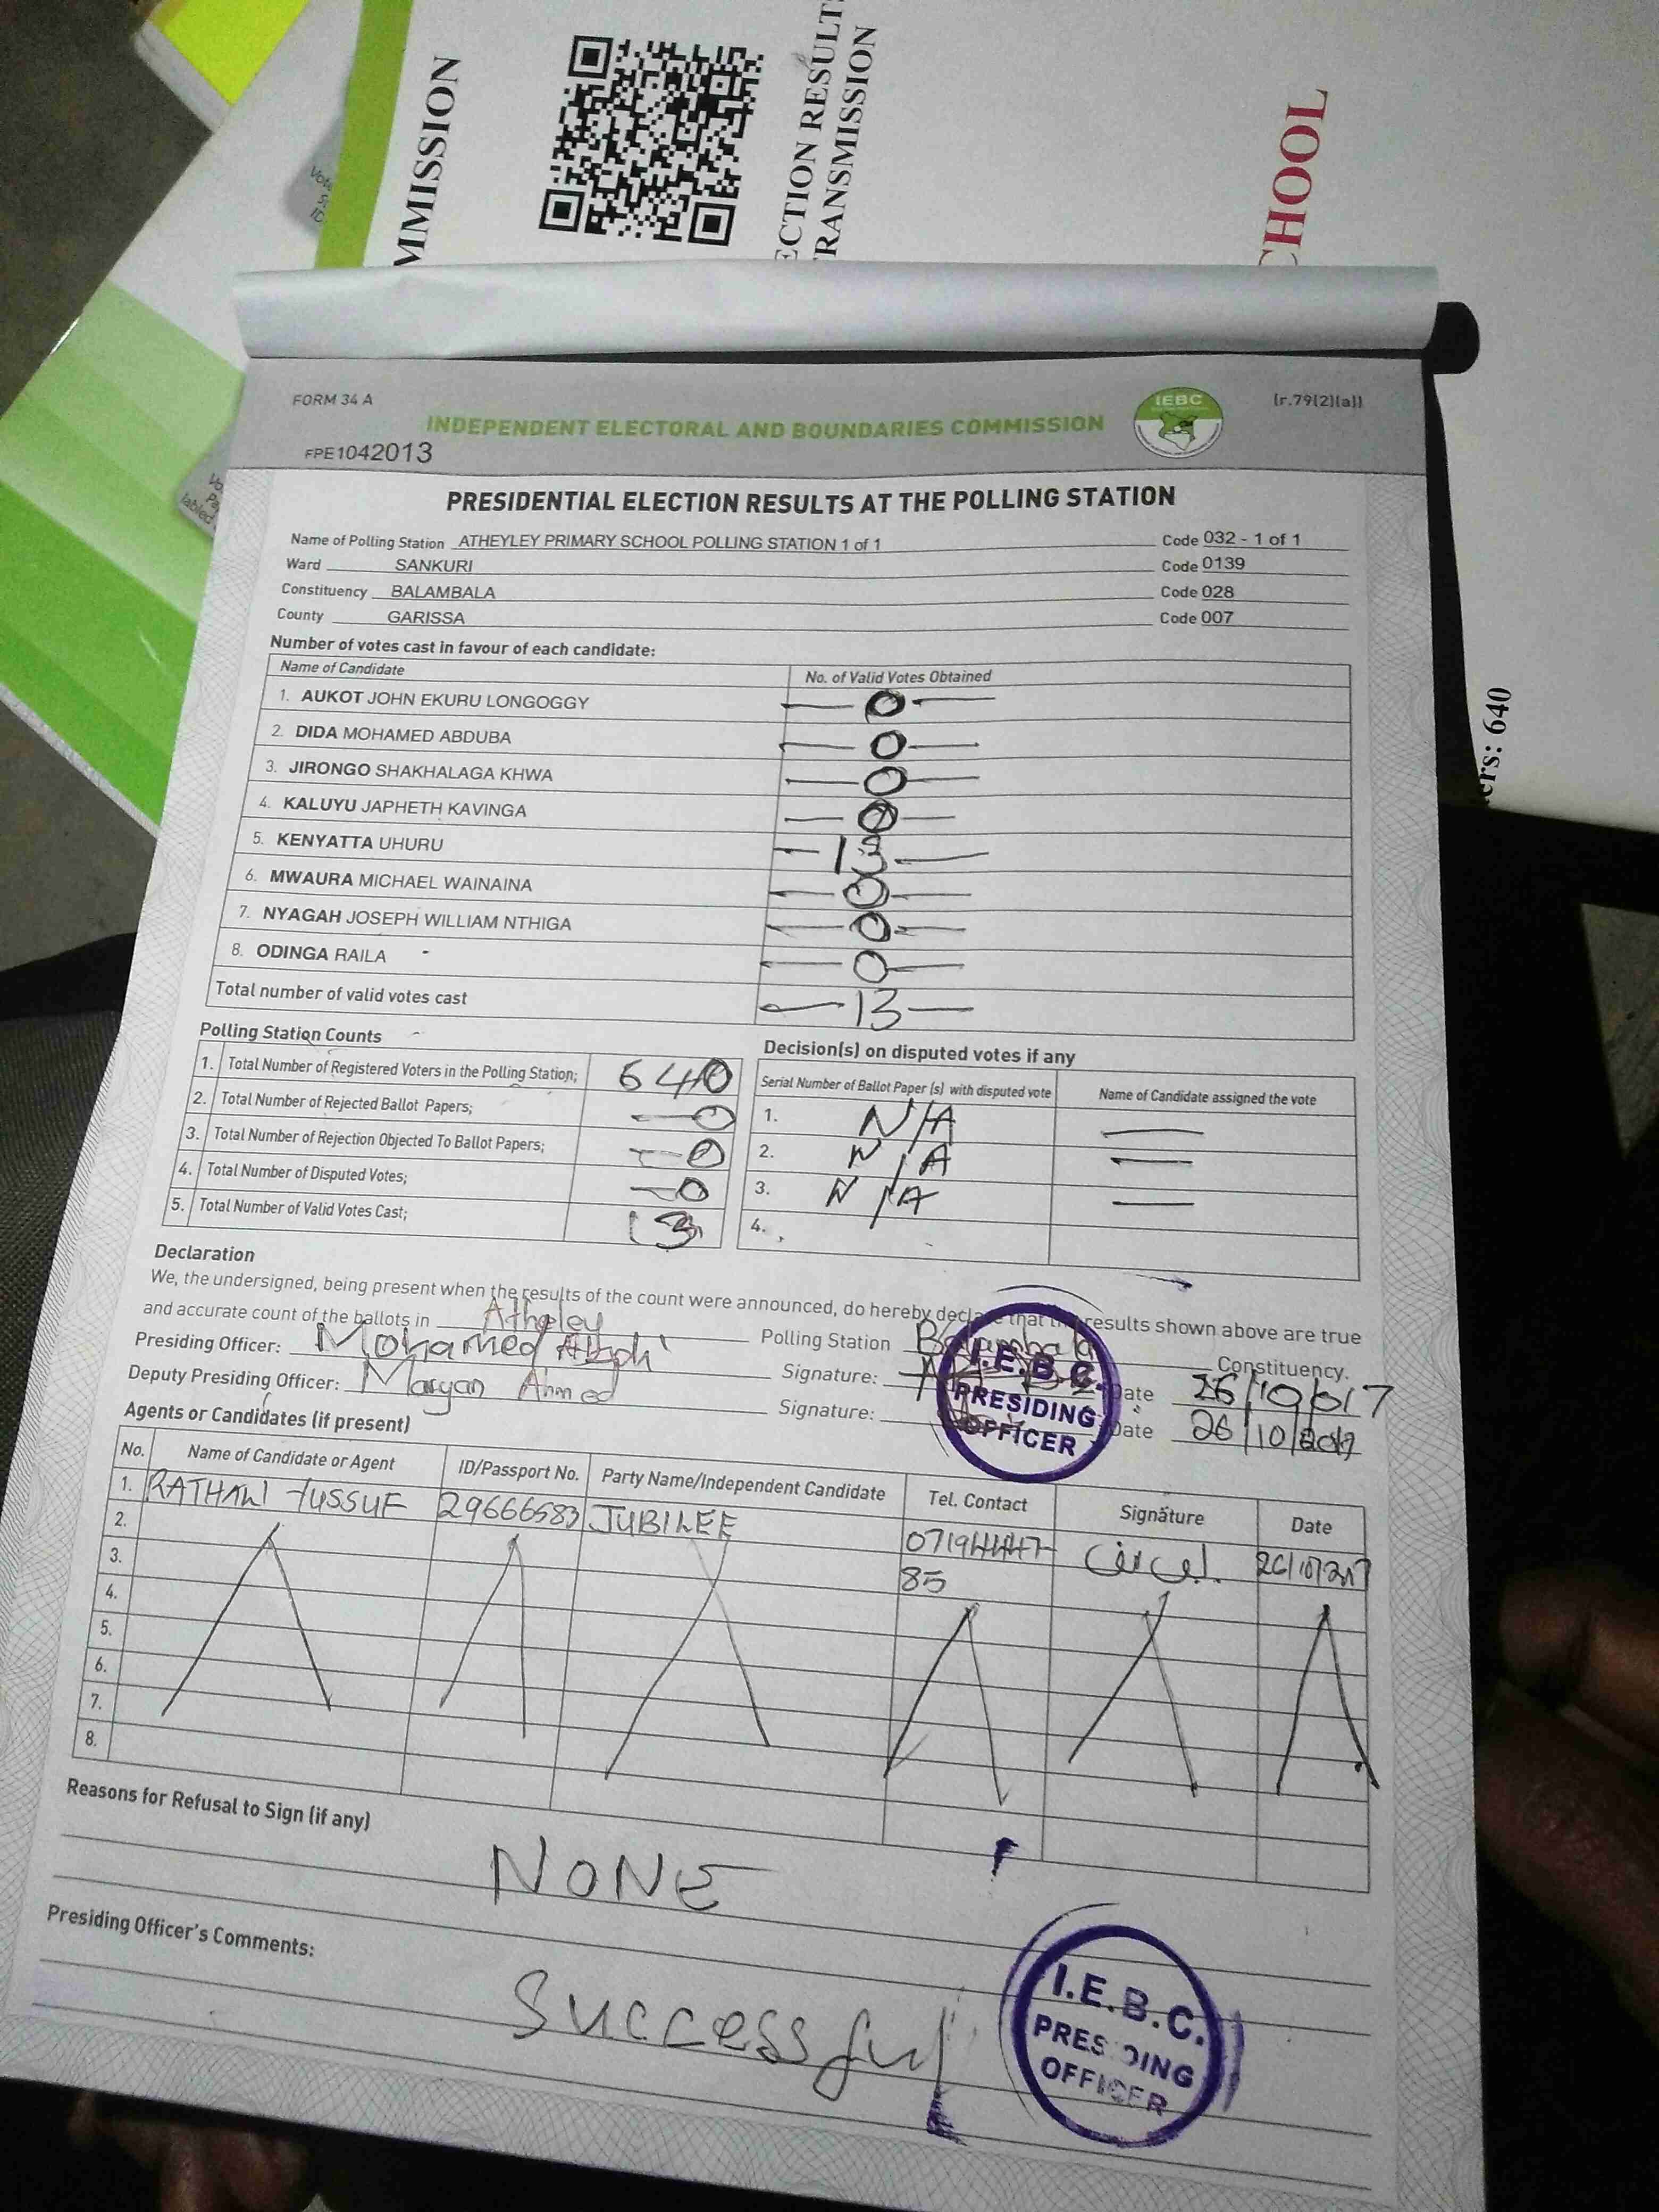 MMISSION
ECTION RESULT
TRANSMISSION
CHOOL
ers: 640
FORM 34 A
(r.79(2)(a))
IEBC
INDEPENDENT ELECTORAL AND BOUNDARIES COMMISSION
FPE1042013
PRESIDENTIAL ELECTION RESULTS AT THE POLLING STATION
Name of Polling Station ATHEYLEY PRIMARY SCHOOL POLLING STATION 1 of 1 Code 032 - 1 of 1
Ward SANKURI Code 0139
Constituency BALAMBALA Code 028
County GARISSA Code 007
Number of votes cast in favour of each candidate:
Name of Candidate No. of Valid Votes Obtained
1. AUKOT JOHN EKURU LONGOGGY 0
2. DIDA MOHAMED ABDUBA 0
3. JIRONGO SHAKHALAGA KHWA 0
4. KALUYU JAPHETH KAVINGA 0
5. KENYATTA UHURU 13
6. MWAURA MICHAEL WAINAINA 0
7. NYAGAH JOSEPH WILLIAM NTHIGA 0
8. ODINGA RAILA 0
Total number of valid votes cast 13
Polling Station Counts
1. Total Number of Registered Voters in the Polling Station; 640
2. Total Number of Rejected Ballot Papers; 0
3. Total Number of Rejection Objected To Ballot Papers; 0
4. Total Number of Disputed Votes; 0
5. Total Number of Valid Votes Cast; 13
Decision(s) on disputed votes if any
Serial Number of Ballot Paper (s) with disputed vote Name of Candidate assigned the vote
1. N/A
2. N/A
3. N/A
4.
Declaration
We, the undersigned, being present when the results of the count were announced, do hereby declare that the results shown above are true
and accurate count of the ballots in Atheley Polling Station Balambala Constituency.
Presiding Officer: Mohamed Signature: Date 26/10/017
Deputy Presiding Officer: Maryan Ahmed Signature: Date 26/10/2017
I.E.B.C.
PRESIDING
OFFICER
Agents or Candidates (if present)
No. Name of Candidate or Agent ID/Passport No. Party Name/Independent Candidate Tel. Contact Signature Date
1. RATHAWI YUSSUF 29666583 JUBILEE 07194447 26/10/2017
85
2.
3.
4.
5.
6.
7.
8.
Reasons for Refusal to Sign (if any)
NONE
Presiding Officer's Comments:
Successful
I.E.B.C.
PRESIDING
OFFICER